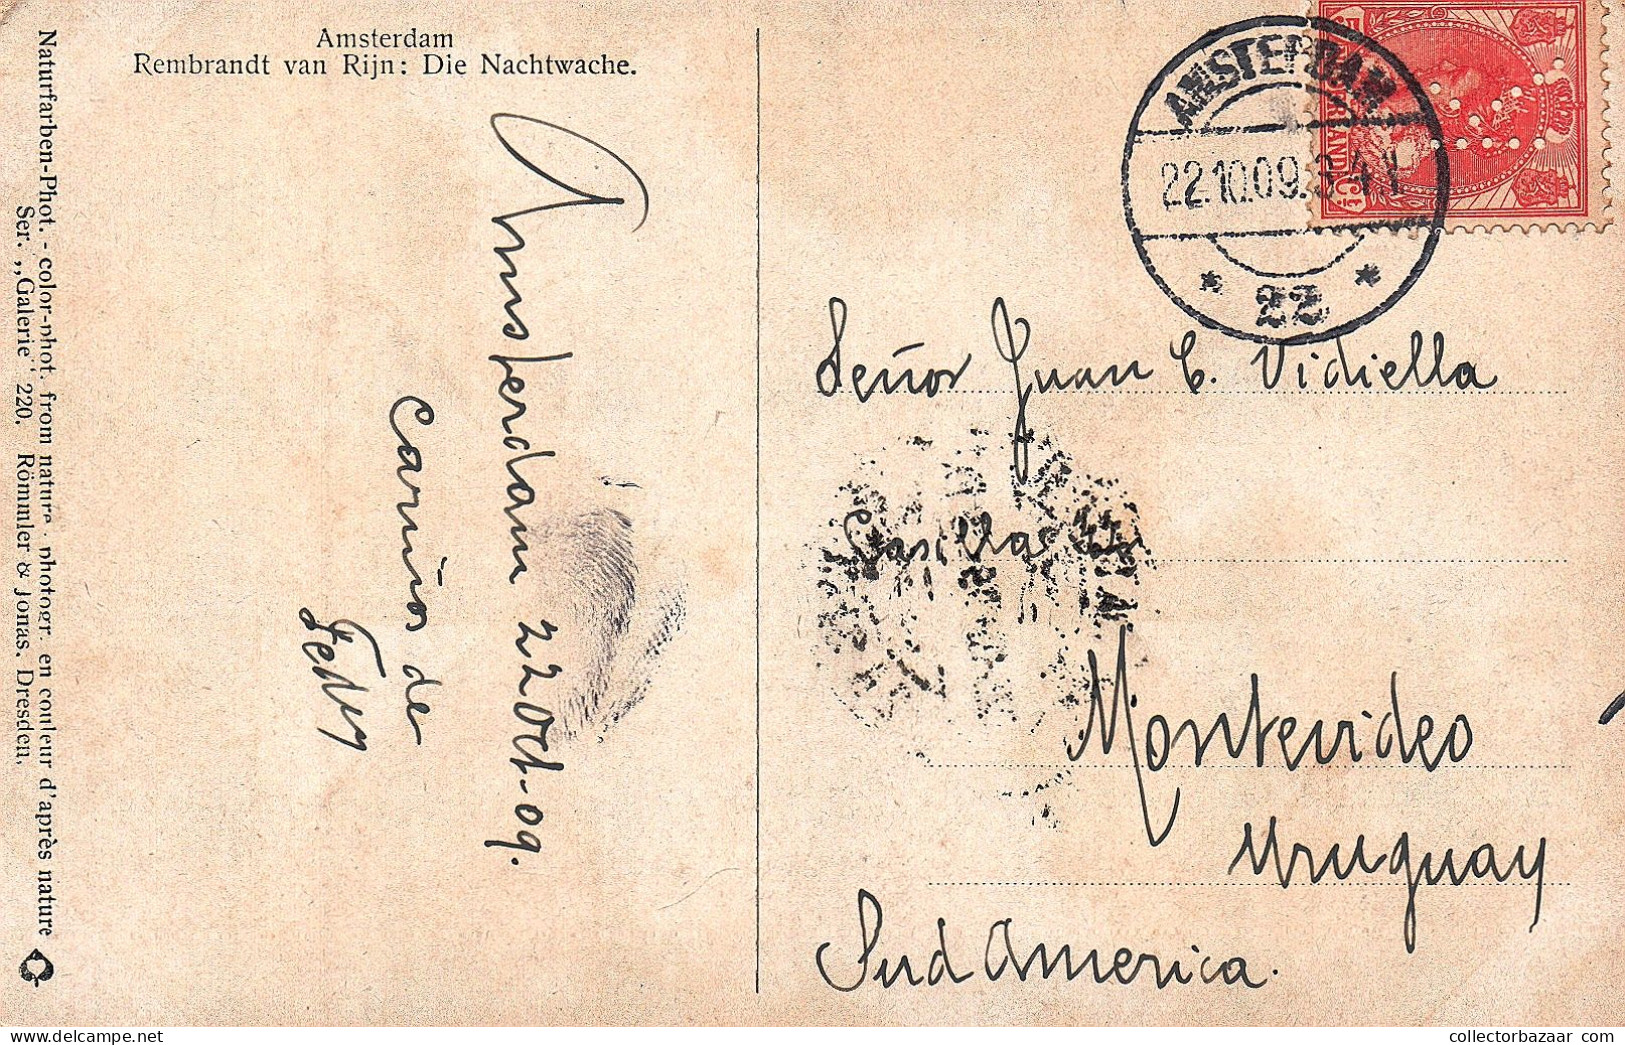 Amsterdam
Rembrandt van Rijn: Die Nachtwache.
Naturfarben-Phot. - color-phot. from nature - photogr. en couleur d'après nature
Ser. ,,Galerie'' 220. Römmler & Jonas, Dresden.
Amsterdam 22 Oct-09.
Cariños de
AMSTERDAM
22.10.09.3-4.N
* 22 *
Señor Juan C. Vidiella
Casilla
Montevideo
Uruguay
Sud America.
collectorbazaar.com